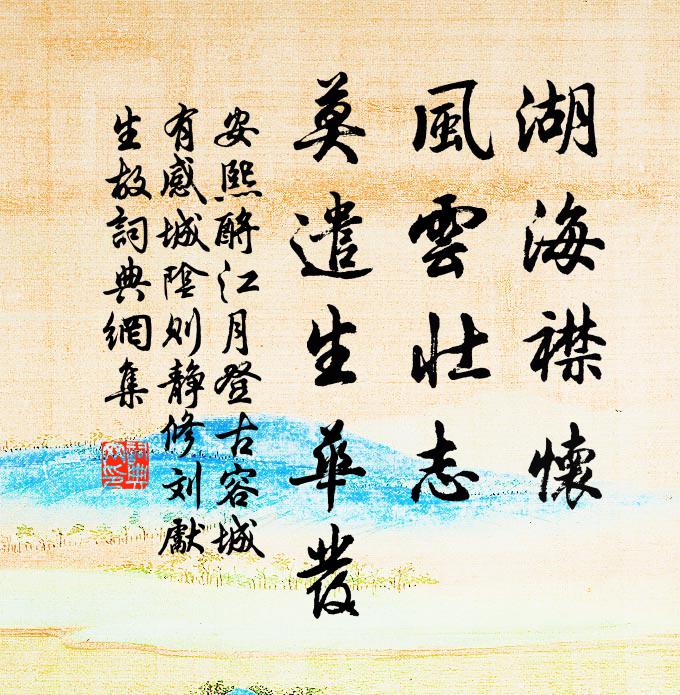 湖海襟懷
風雲壯志
莫遣生華髮
安熙酹江月登古容城
有感城陰则靜修刘獻
生故詞典網集